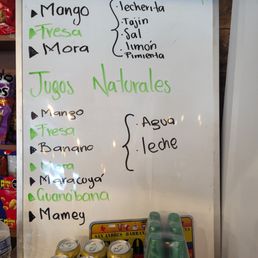 Mango
Fresa
Mora
lecherita
Tajin
Sal
limón
Pimienta
Jugos Naturales
Mango
Fresa
Banano
Mora
Maracuyá
Guanabana
Mamey
Agua
leche